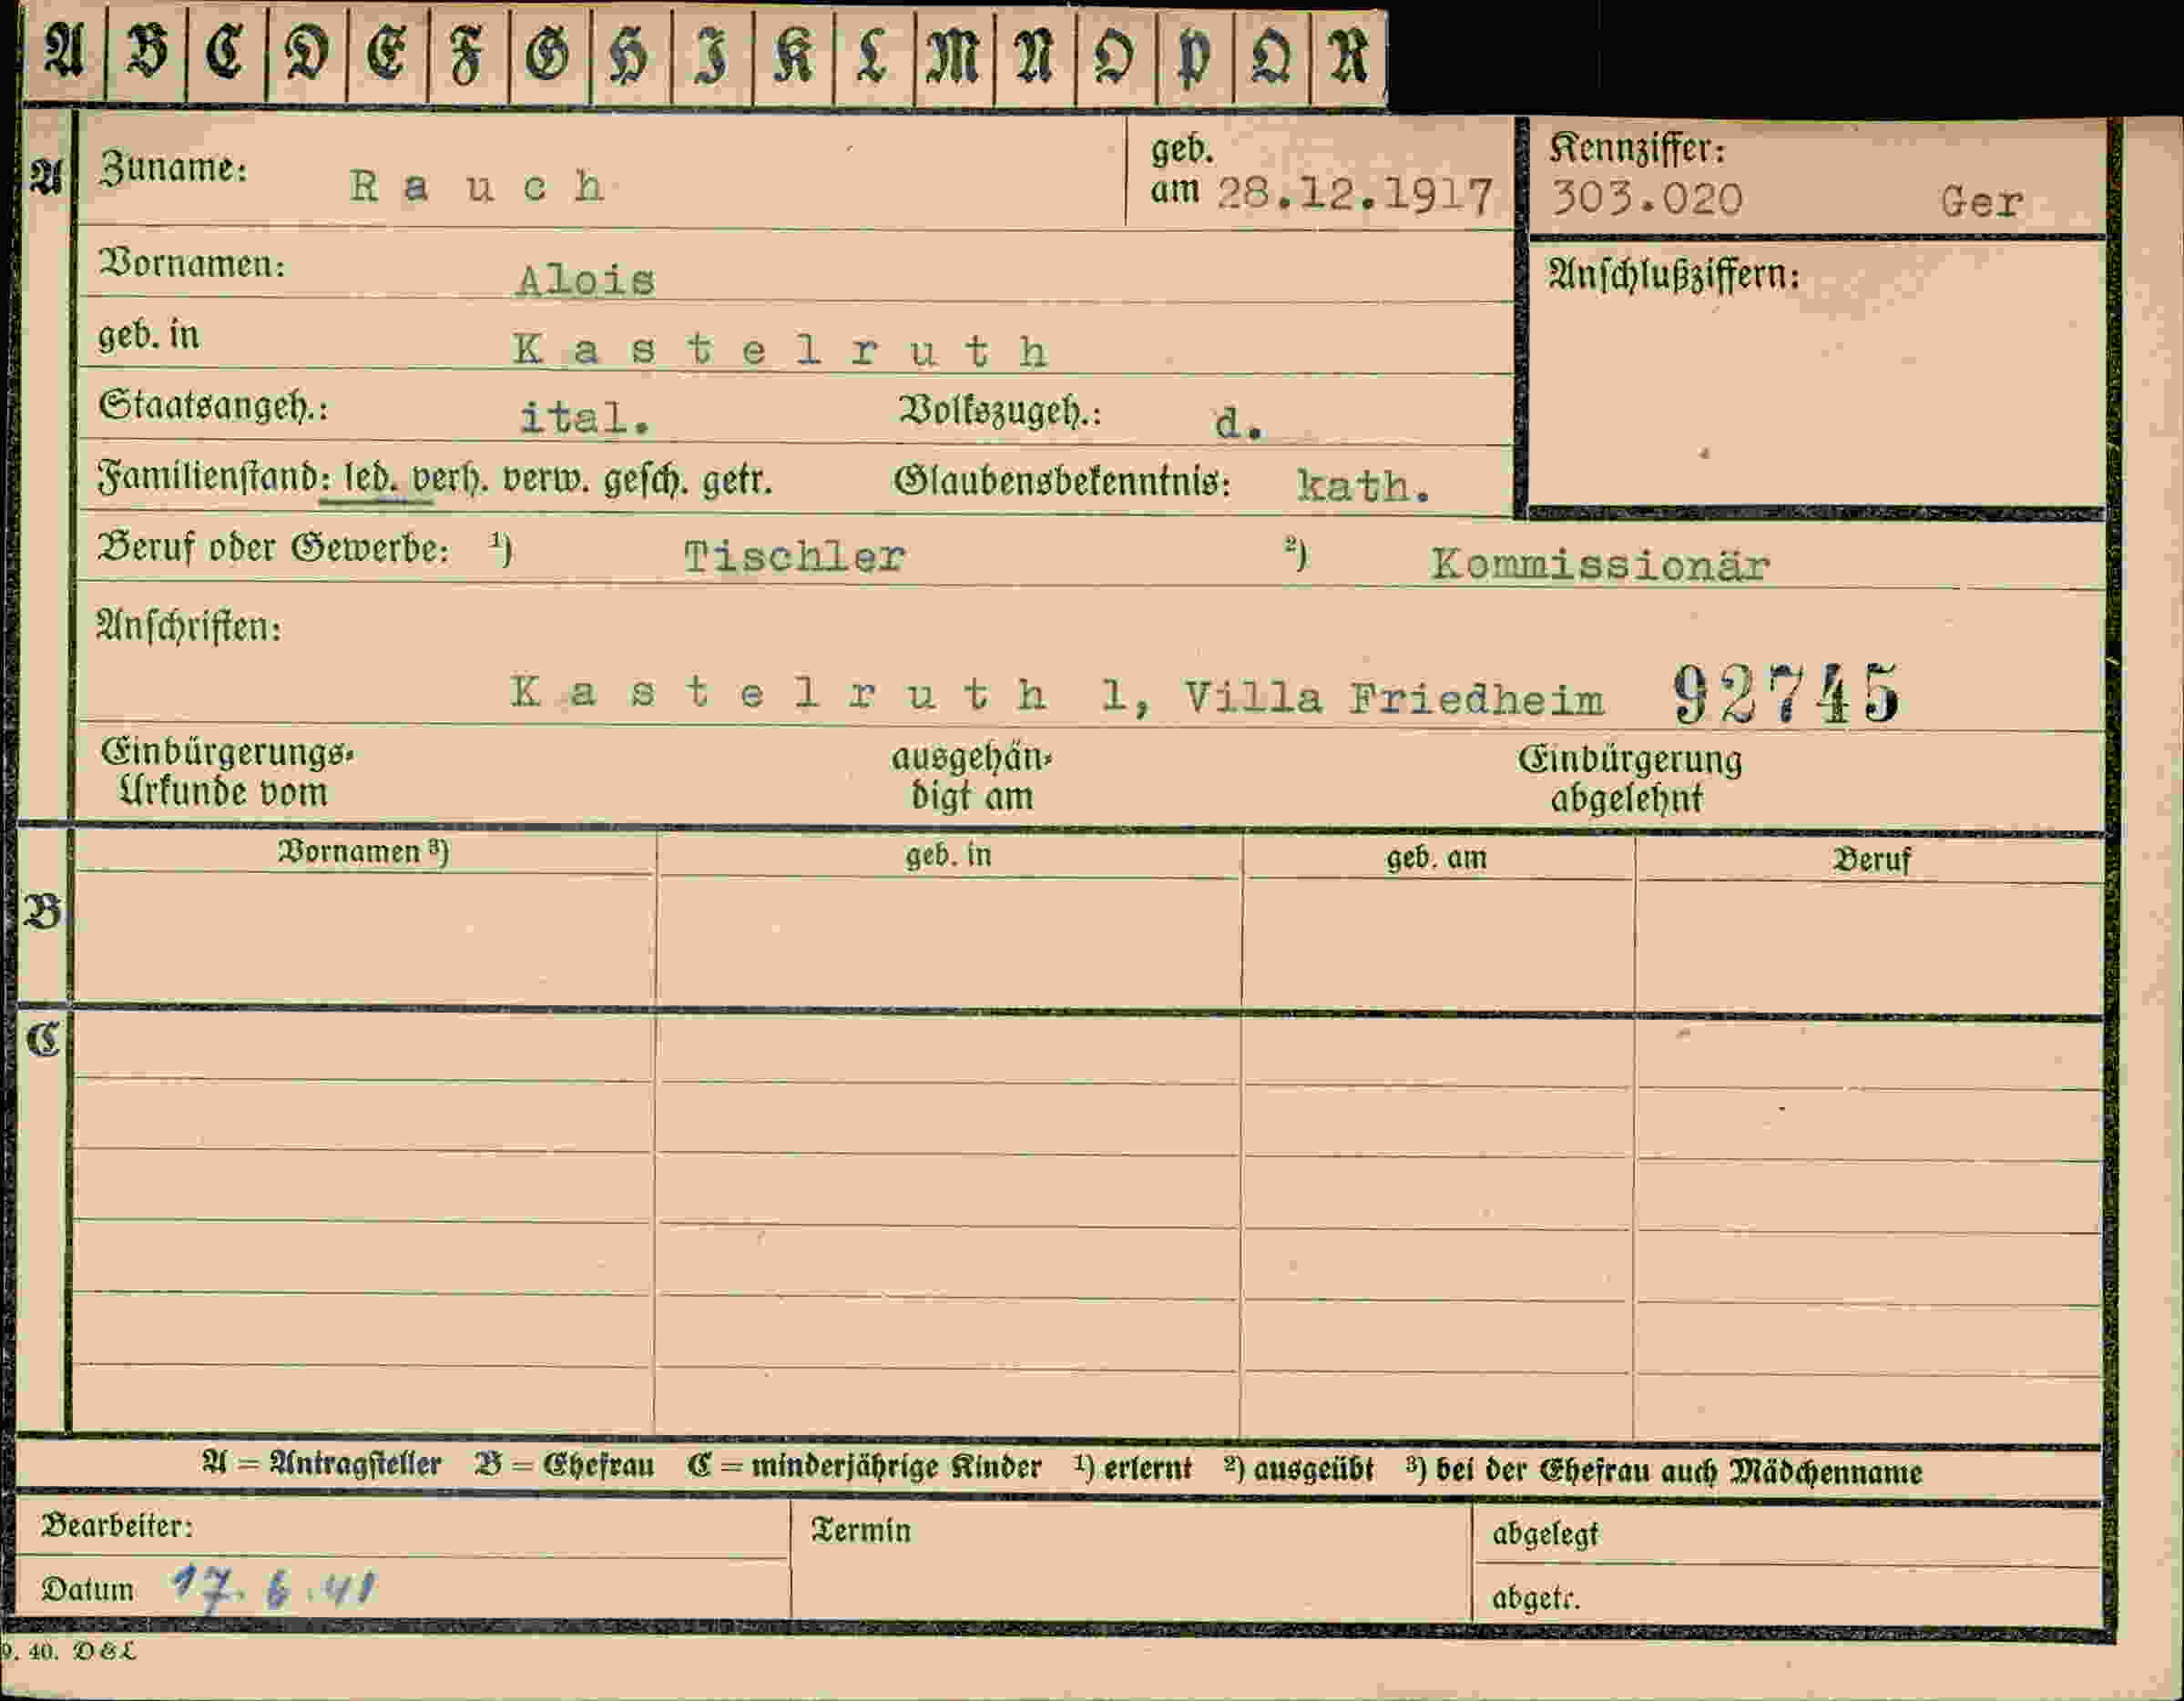 A B C D E F G H I K L M N O P Q R
A Zuname: Rauch geb. am 28.12.1917 Kennziffer: 303.020 Ger
Vornamen: Alois Anschlußziffern:
geb. in Kastelruth
Staatsangeh.: ital. Volkszugeh.: d.
Familienstand: led. verh. verw. gesch. getr. Glaubensbekenntnis: kath.
Beruf oder Gewerbe: ¹) Tischler ²) Kommissionär
Anschriften:
Kastelruth 1, Villa Friedheim 92745
Einbürgerungs- ausgehän- Einbürgerung
Urkunde vom digt am abgelehnt
Vornamen ³) geb. in geb. am Beruf
B
C
A = Antragsteller B = Ehefrau C = minderjährige Kinder ¹) erlernt ²) ausgeübt ³) bei der Ehefrau auch Mädchenname
Bearbeiter: Termin abgelegt
Datum 17. 6. 41 abgetr.
9. 40. D&L